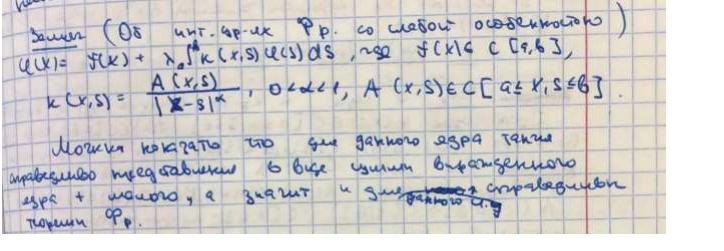 Замеч (Об инт. ур-ях Фр. со слабой особенностью)
φ(x) = f(x) + λ ₐ∫ᵇ K(x,s) φ(s) ds, где f(x) ∈ C[a,b],
K(x,s) = A(x,s) / |x-s|^α, 0<α<1, A(x,s) ∈ C[a≤x,s≤b].
Можно показать что для данного ядра также
справедливо представление в виде суммы вырожденного
ядра + малого, а значит и для данного и.у справедливы
теоремы Фр.